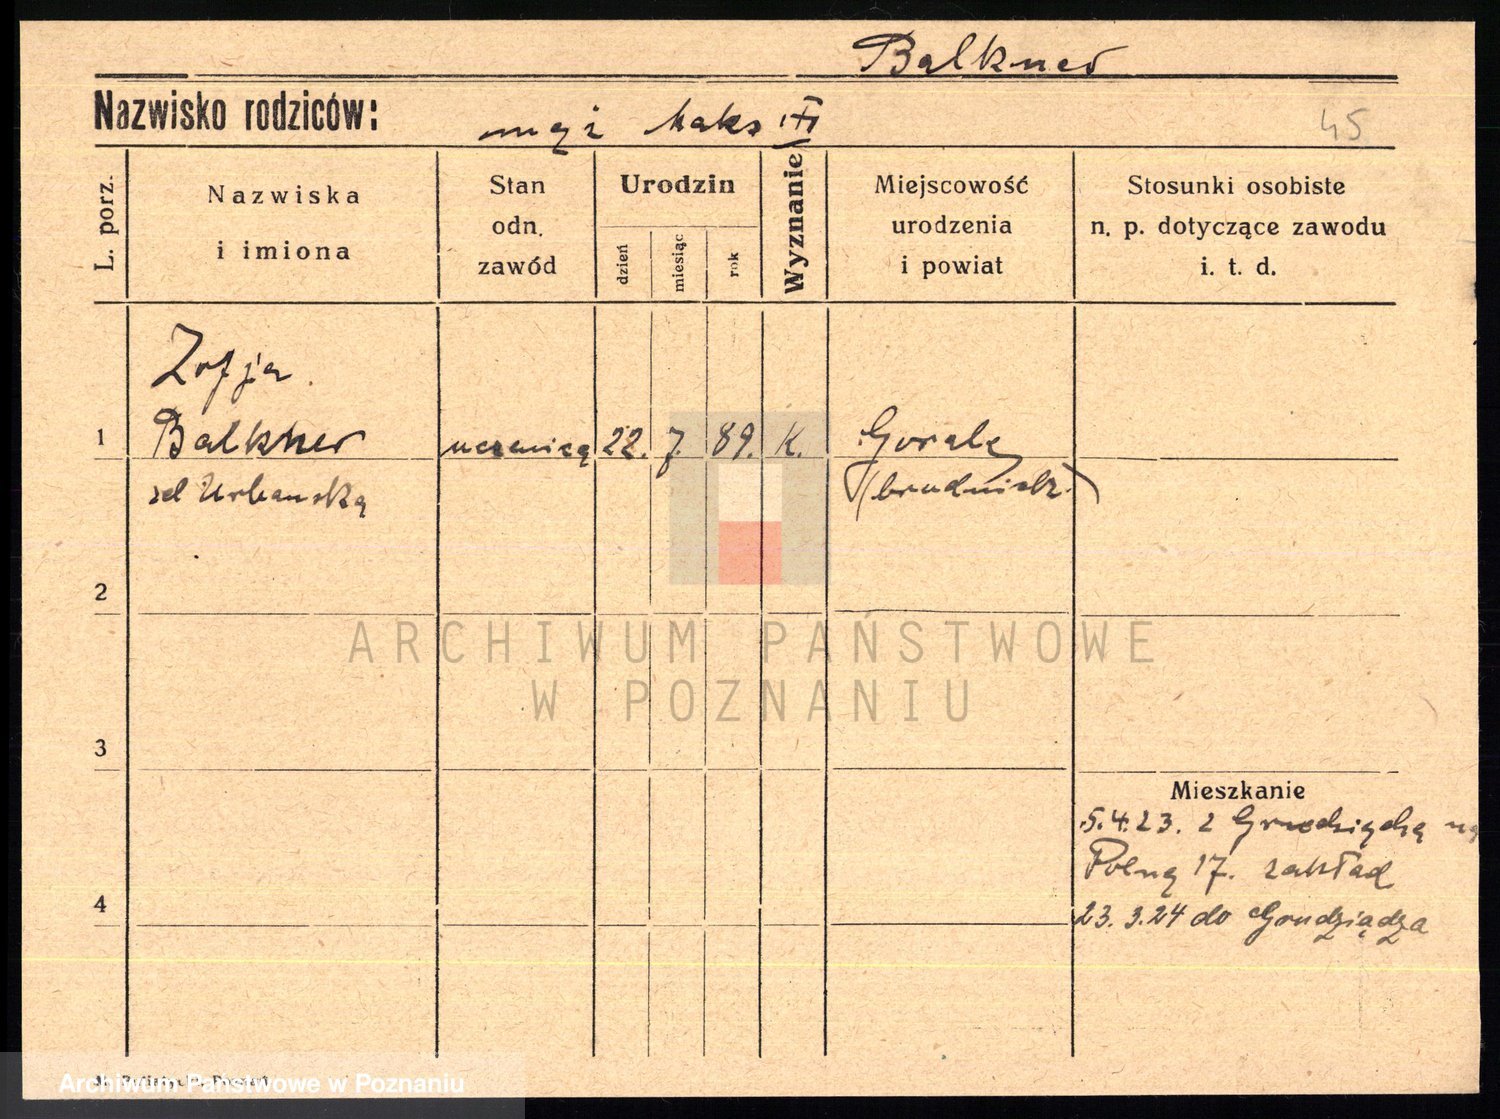 Balkner
Nazwisko rodziców:
mąż Maks
45
L. porz.
Nazwiska
i imiona
Stan
odn.
zawód
Urodzin
dzień
miesiąc
rok
Wyznanie
Miejscowość
urodzenia
i powiat
Stosunki osobiste
n. p. dotyczące zawodu
i. t. d.
Zofja
1 Balkner uczenicą 22. 7. 89. K. Gorale
Urbańską (brudnick.)
2
3
4
Mieszkanie
5.4.23. z Grudziądza na
Polną 17. zakład
23.3.24 do Grudziądza
ARCHIWUM PAŃSTWOWE
W POZNANIU
Archiwum Państwowe w Poznaniu